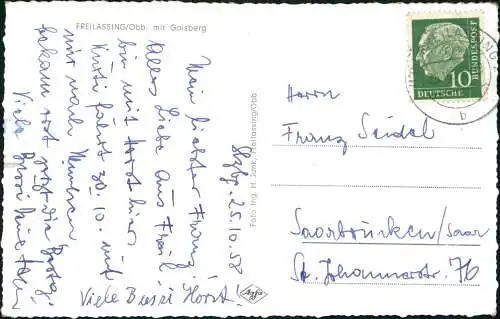 FREILASSING/Obb. mit Gaisberg
Szbg. 25.10.58
Mein liebster Franz!
Alles Liebe aus Freil.
bin mit Horst hier.
fährt 30.10. mit
mir nach
bekam erst jetzt die
Viele Bussi
Viele Bussi Horst!
Foto Ing. H. Jank, Freilassing/Obb.
Agfa
DEUTSCHE
BUNDESPOST
10
b
Herrn
Franz Seidel
Saarbrücken/Saar
St. Johannerstr. 76